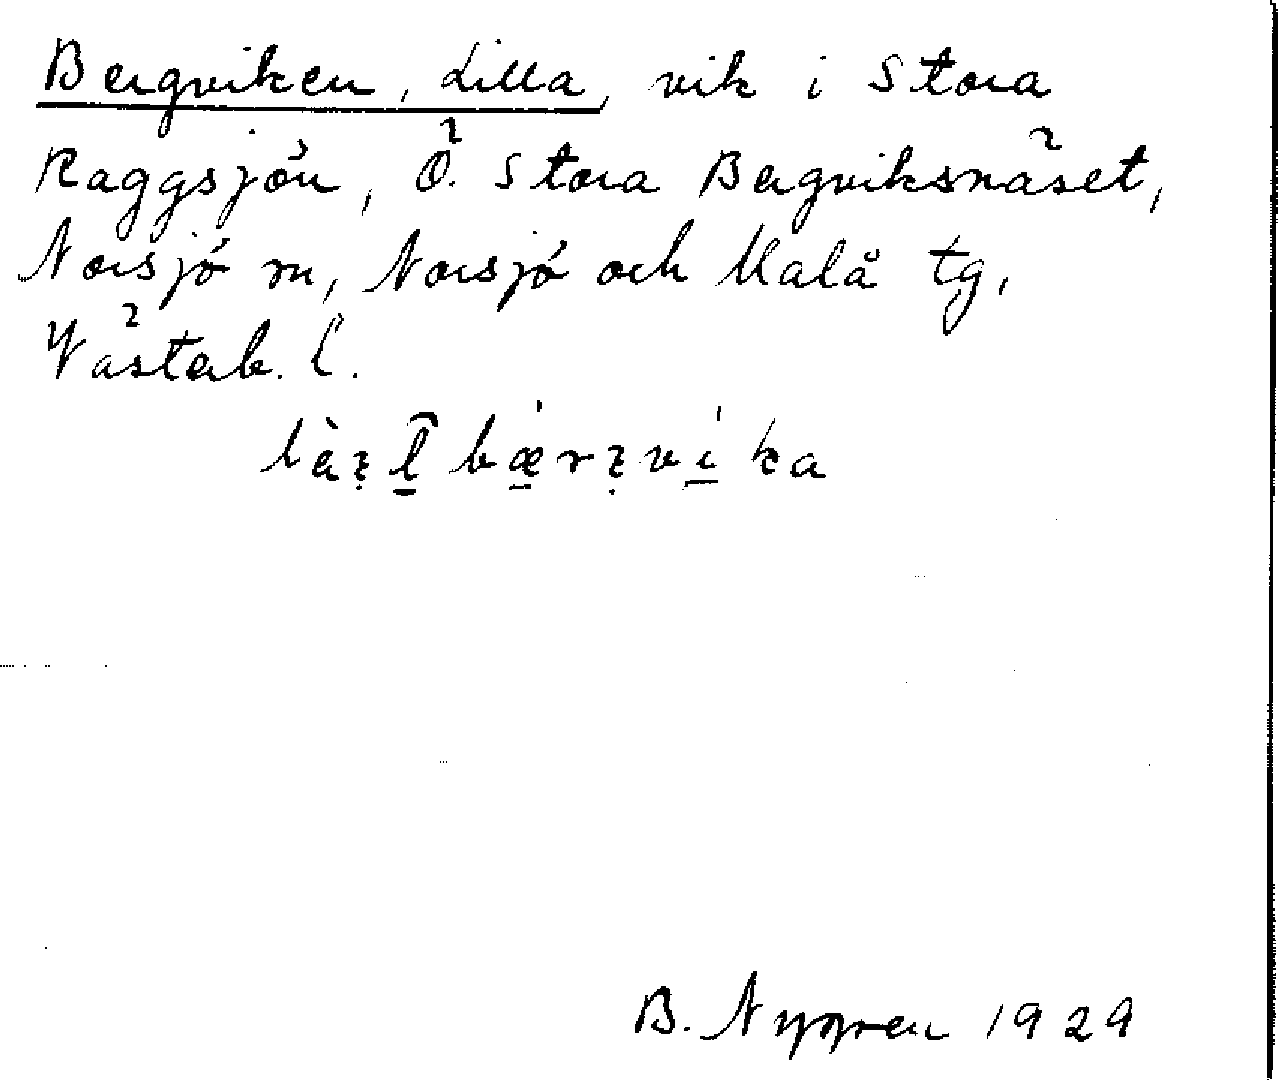 Bergviken, Lilla, vik i Stora
Raggsjön, Ö. Stora Bergviksnäset,
Norsjö sn, Norsjö och Malå tg,
Västerb. l.
B. Nygren 1929